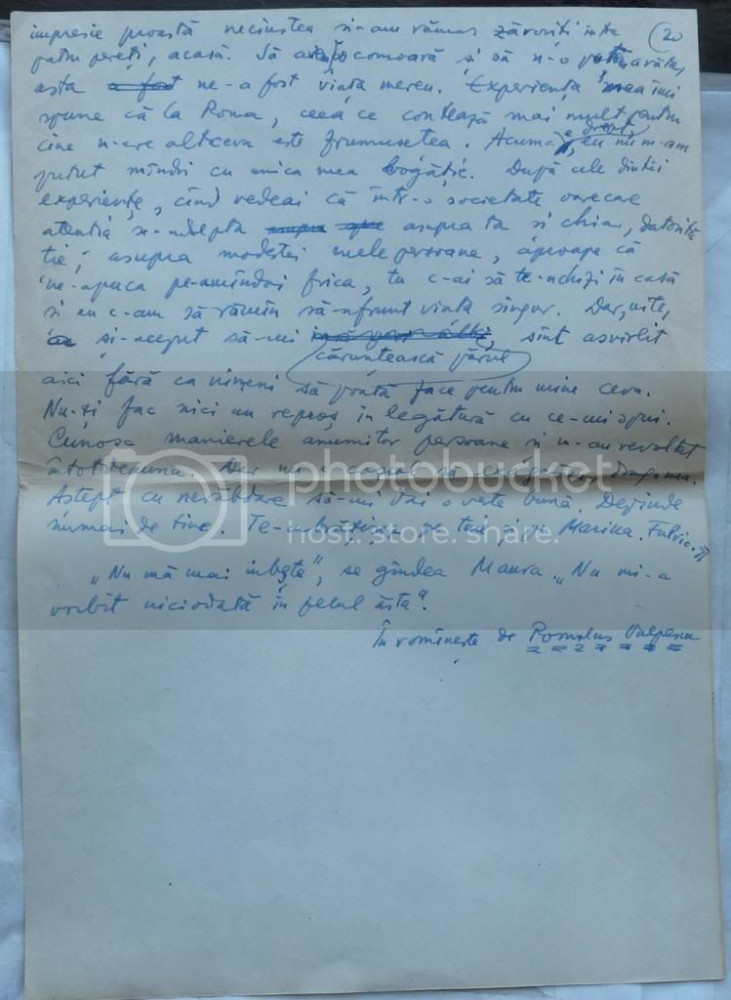 impresie proastă necinstea și-am rămas zăvoriți între (20
patru pereți, acasă. Să ai o comoară și să n-o poți arăta,
asta a fost ne-a fost viața mereu. Experiența mea îmi
spune că la Roma, ceea ce contează mai mult pentru
cine n-are altceva este frumusețea. Acuma, e drept, eu nu m-am
putut mîndri cu unica mea bogăție. După cele dintîi
experiențe, cînd vedeai că într-o societate oarecare
atenția se-ndrepta asupra ta și chiar, datorită
ție, asupra modestei mele persoane, aproape că
ne-apuca pe-amîndoi frica, tu c-ai să te-nchizi în casă
și eu c-am să rămîn să-nfrunt viața singur. Dar, uite,
și-nceput să-mi sînt asvîrlit
cărunțească părul
aici fără ca nimeni să poată face pentru mine ceva.
Nu-ți fac nici un reproș în legătură cu ce-mi spui.
Cunosc manierele anumitor persoane și m-au revoltat
întotdeauna. Dar nu e cazul să exagerăm, Dragomea.
Aștept cu nerăbdare să-mi dai o veste bună. Depinde
numai de tine. Te-mbrățișez pe tine și pe Marika. Fulvio."
„Nu mă mai iubește", se gîndea Maura. „Nu mi-a
vorbit niciodată în felul ăsta".
În romînește de Romulus Vulpescu
photobucket
host. store. share.